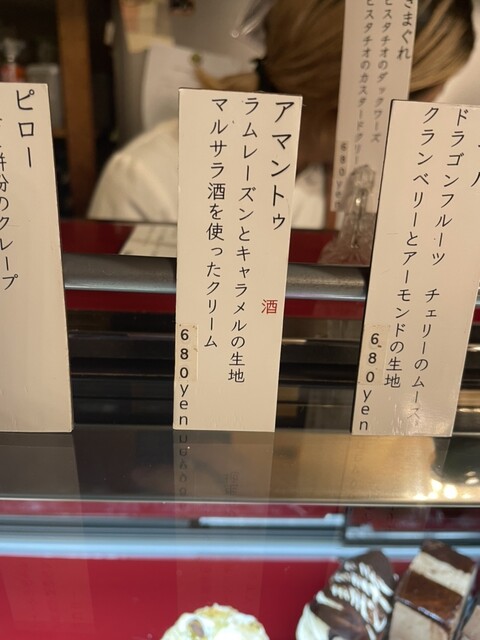 ピロー
アマントゥ
ラムレーズンとキャラメルの生地
マルサラ酒を使ったクリーム
酒
680yen
きまぐれ
ピスタチオのダックワーズ
ピスタチオのカスタードクリー
680yen
ドラゴンフルーツ チェリーのムース
クランベリーとアーモンドの生地
680yen